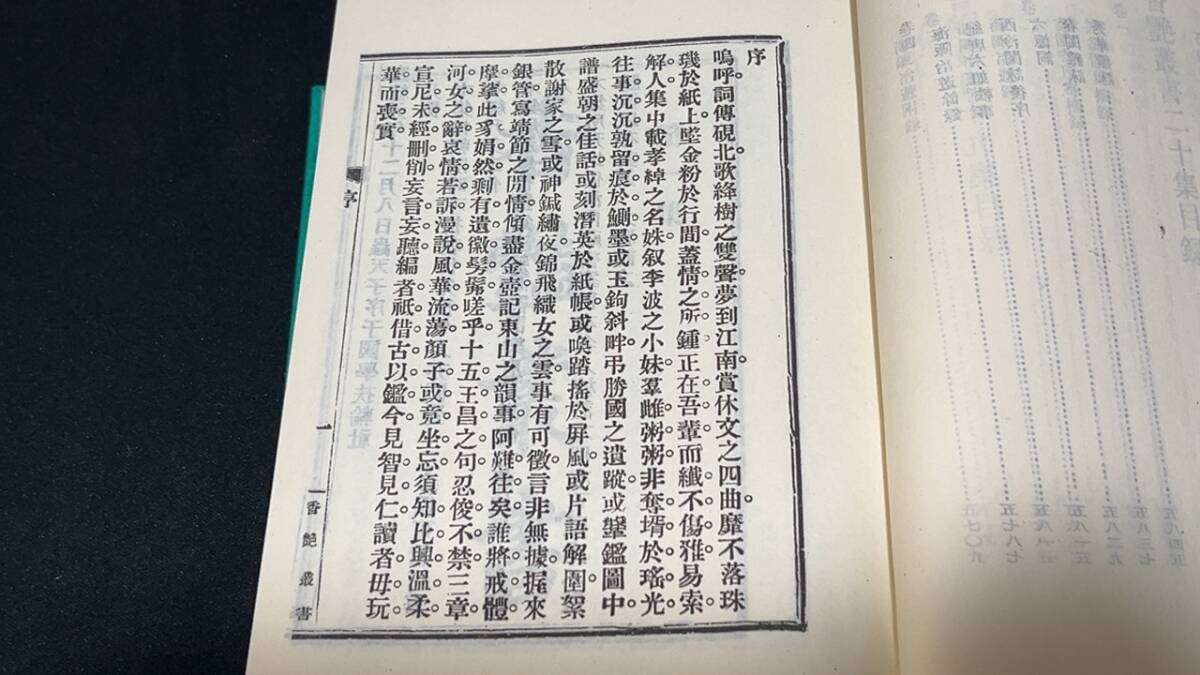 序
嗚呼詞傳硯北歌絳樹之雙聲夢到江南賞休文之四曲靡不落珠
璣於紙上墜金粉於行間蓋情之所鍾正在吾輩而纖不傷雅易索
解人集中載孝綽之名姝叙李波之小妹羣雌粥粥非奪壻於瑤光
往事沉沉孰留痕於鰂墨或玉鉤斜畔弔勝國之遺蹤或鞶鑑圖中
譜盛朝之佳話或刻潛英於紙帳或喚踏搖於屏風或片語解圍絮
散謝家之雪或神鍼繡夜錦飛織女之雲事有可徵言非無據握來
銀管寫靖節之閒情傾盡金壺記東山之韻事阿難往矣誰將戒體
摩挲此豸娟然剩有遺徽髣髴嗟乎十五王昌之句忍俊不禁三章
河女之辭哀情若訴漫說風華流蕩顏子或竟坐忘須知比興溫柔
宣尼未經刪削妄言妄聽編者祇借古以鑑今見智見仁讀者毋玩
華而喪實
序
一
香艷叢書